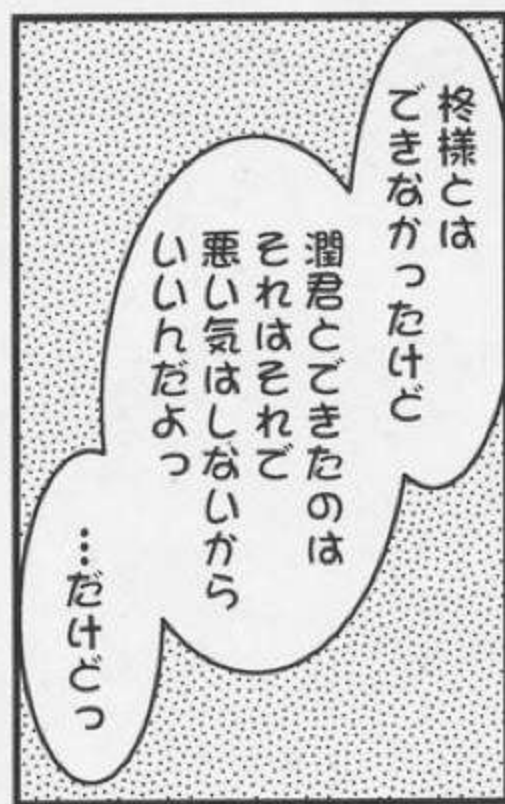 柊様とは
できなかったけど
潤君とできたのは
それはそれで
悪い気はしないから
いいんだよっ
…だけどっ